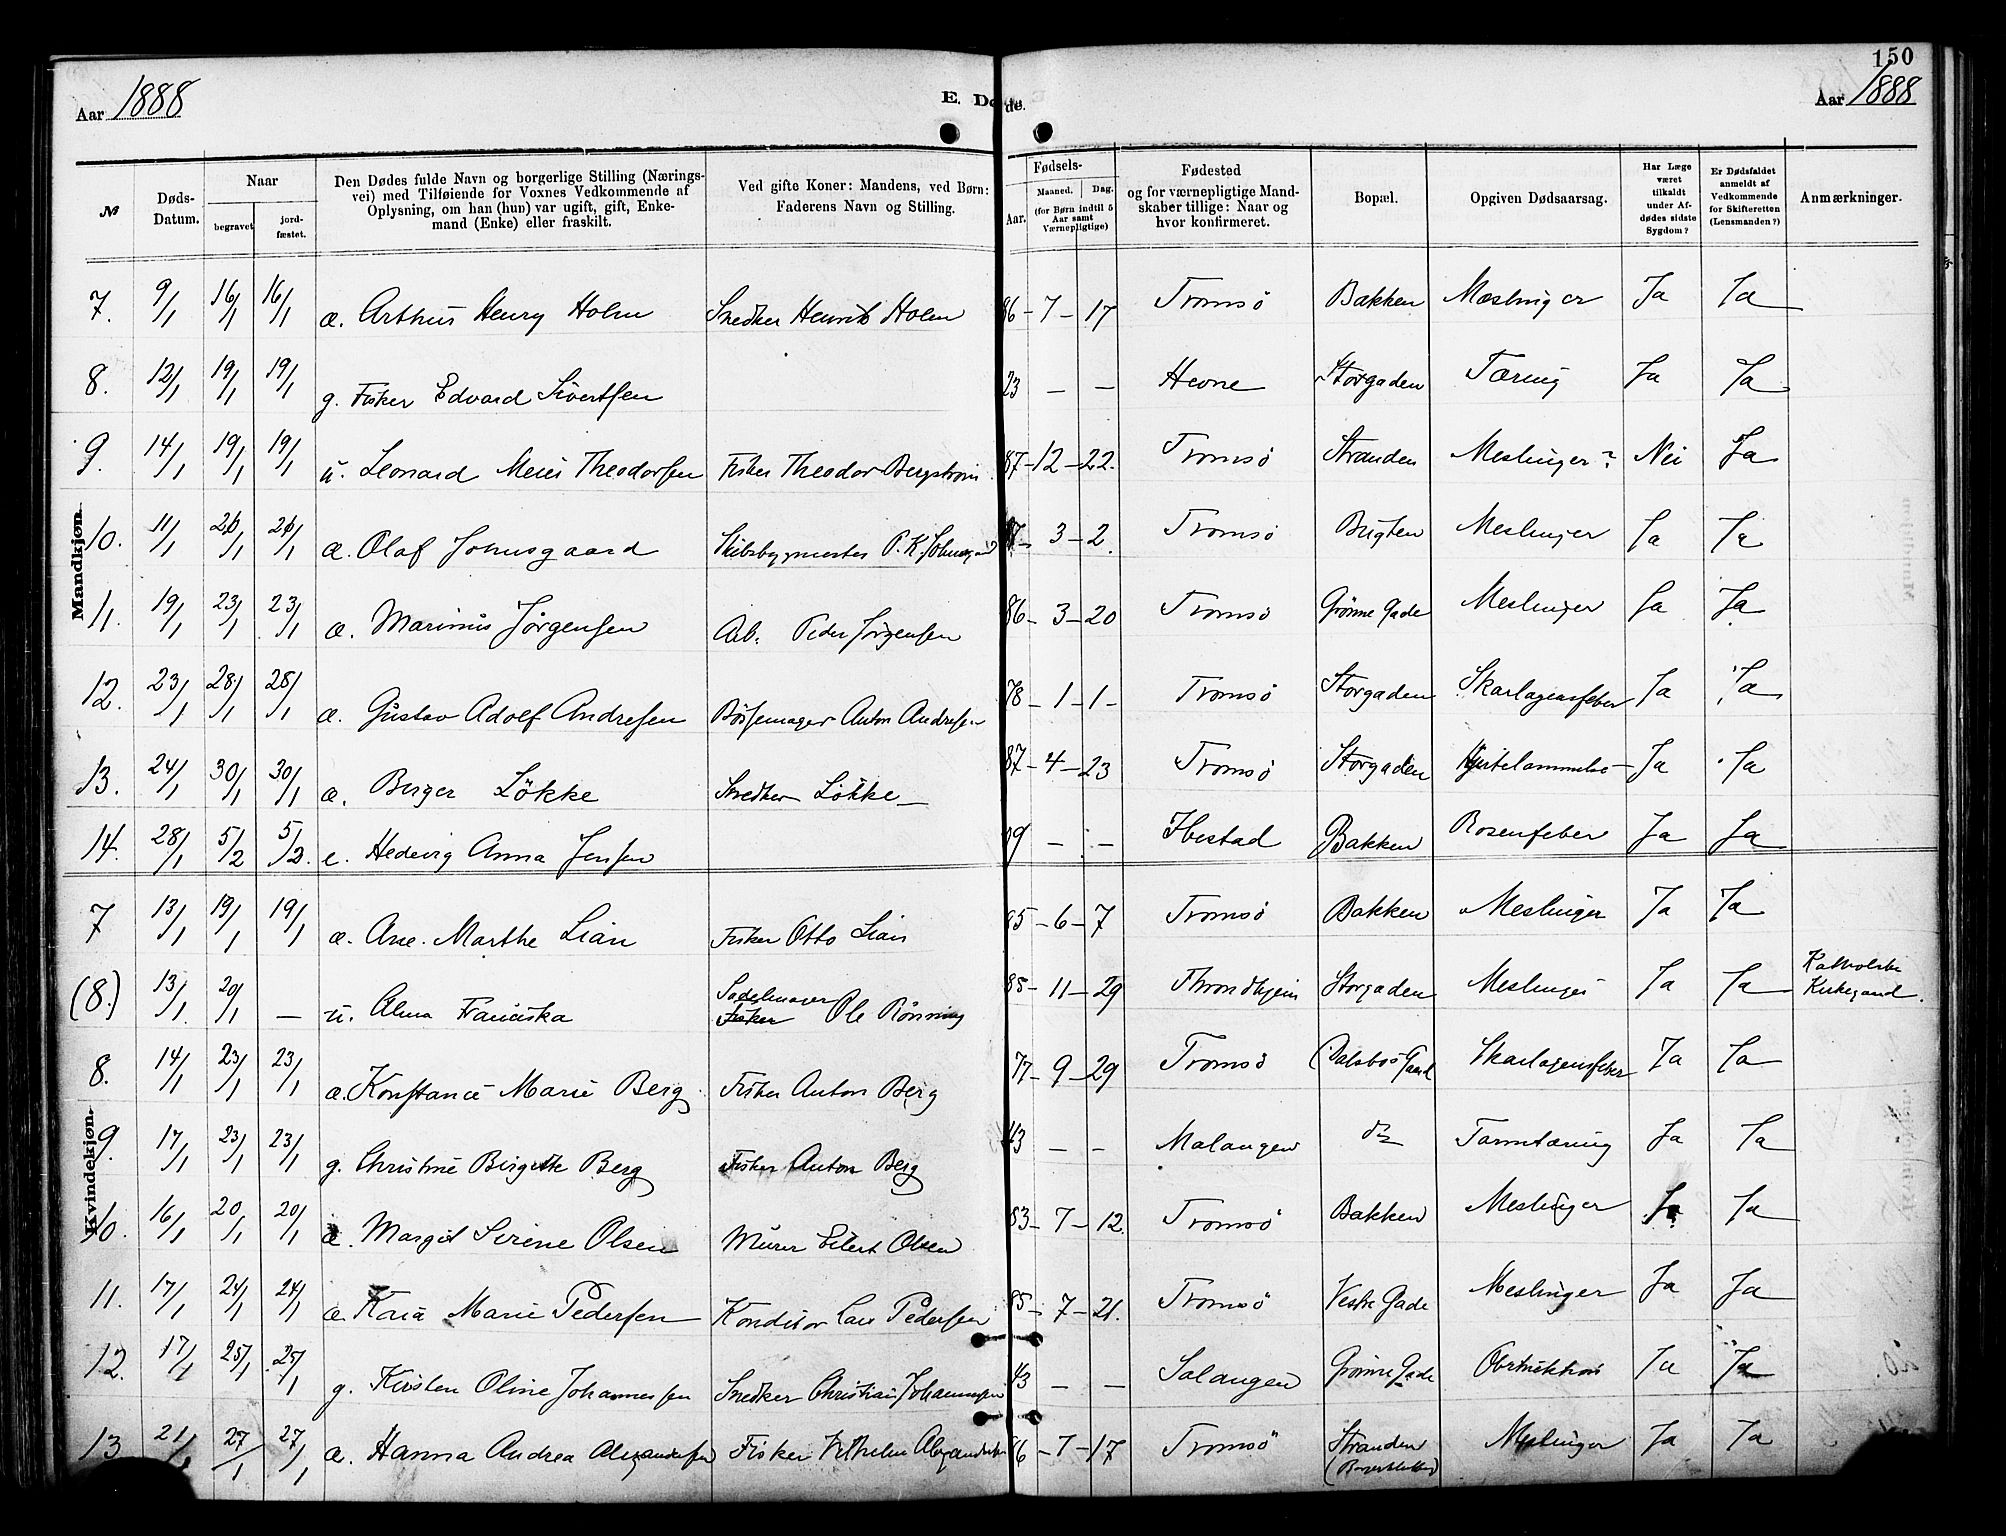 150
Aar 1888
E. Døde.
Aar 1888
№
Døds-Datum.
Naar
begravet
jord-fæstet.
Den Dødes fulde Navn og borgerlige Stilling (Nærings-
vei) med Tilføiende for Voxnes Vedkommende af
Oplysning, om han (hun) var ugift, gift, Enke-
mand (Enke) eller fraskilt.
Ved gifte Koner: Mandens, ved Børn:
Faderens Navn og Stilling.
Fødsels-
Aar.
Maaned.
Dag.
(for Børn indtil 5
Aar samt
Værnepligtige)
Fødested
og for værnepligtige Mand-
skaber tillige: Naar og
hvor konfirmeret.
Bopæl.
Opgiven Dødsaarsag.
Har Læge
været
tilkaldt
under Af-
dødes sidste
Sygdom?
Er Dødsfaldet
anmeldt af
Vedkommende
for Skifteretten
(Lensmanden?)
Anmærkninger.
Mandkjøn.
7. 9/1 16/1 16/1 æ. Arthur Henry Holm Snedker Henrik Holm 86 - 7 - 17 Tromsö Bakken Mæslinger Ja Ja
8. 12/1 19/1 19/1 g. Fisker Edvard Sivertsen 23 — — Hevne Storgaden Tæring Ja Ja
9. 14/1 19/1 19/1 u. Leonard Meier Theodorsen Fisker Theodor Bergstrøm 87 - 12 - 22. Tromsö Stranden Meslinger? Nei Ja
10. 11/1 26/1 26/1 æ. Olaf Johnsgaard Skibsbygmester P. K. Johnsgaard 87 - 3 - 2. Tromsö Bugten Meslinger Ja Ja
11. 19/1 23/1 23/1 æ. Marinius Jörgensen Arb. Peder Jörgensen 86 - 3 - 20 Tromsö Grönne Gade Meslinger Ja Ja
12. 23/1 28/1 28/1 æ. Gustav Adolf Andresen Bössemager Anton Andresen 78 - 1 - 1 - Tromsö Storgaden Skarlagensfeber Ja Ja
13. 24/1 30/1 30/1 æ. Birger Lökke Snedker Lökke 87 - 4 - 23 Tromsö Storgaden Hjertelammelse - Ja Ja
14. 28/1 5/2 5/2. e. Hedevig Anna Jensen 09 — — Ibestad Bakken Rosenfeber Ja Ja
Kvindekjøn.
7 13/1 19/1 19/1 æ. Ane Marthe Lian Fisker Otto Lian 85 - 6 - 7 Tromsö Bakken Meslinger Ja Ja
(8.) 13/1 20/1 — u. Alma Franciska Sadelmager Fisker Ole Rönning 85 - 11 - 29 Throndhjem Storgaden Meslinger Ja Ja Katholske Kirkegaard.
8. 14/1 23/1 23/1 æ. Konstance Marie Berg Fisker Anton Berg 77 - 9 - 29 Tromsö Dalsbos Gaard Skarlagensfeber Ja Ja
9. 17/1 23/1 23/1 g. Christine Birgitte Berg Fisker Anton Berg 43 — — Malangen do Tarmtæring Ja Ja
10. 16/1 20/1 20/1 æ. Margit Sirene Olsen Murer Eilert Olsen 83 - 7 - 12. Tromsö Bakken Meslinger Ja Ja
11. 17/1 24/1 24/1 æ. Kaia Marie Pedersen Konditor Carl Pedersen 85 - 7 - 21. Tromsö Vestre Gade Meslinger Ja Ja
12. 17/1 25/1 25/1 g. Kirsten Oline Johannessen Snedker Christian Johannessen 43 — — Salangen Grönne Gade Obstruktion Ja Ja
13 21/1 27/1 27/1 æ. Hanna Andrea Alexandersen Fisker Vilhelm Alexandersen 86 - 7 - 17 Tromsö Stranden Meslinger Ja Ja